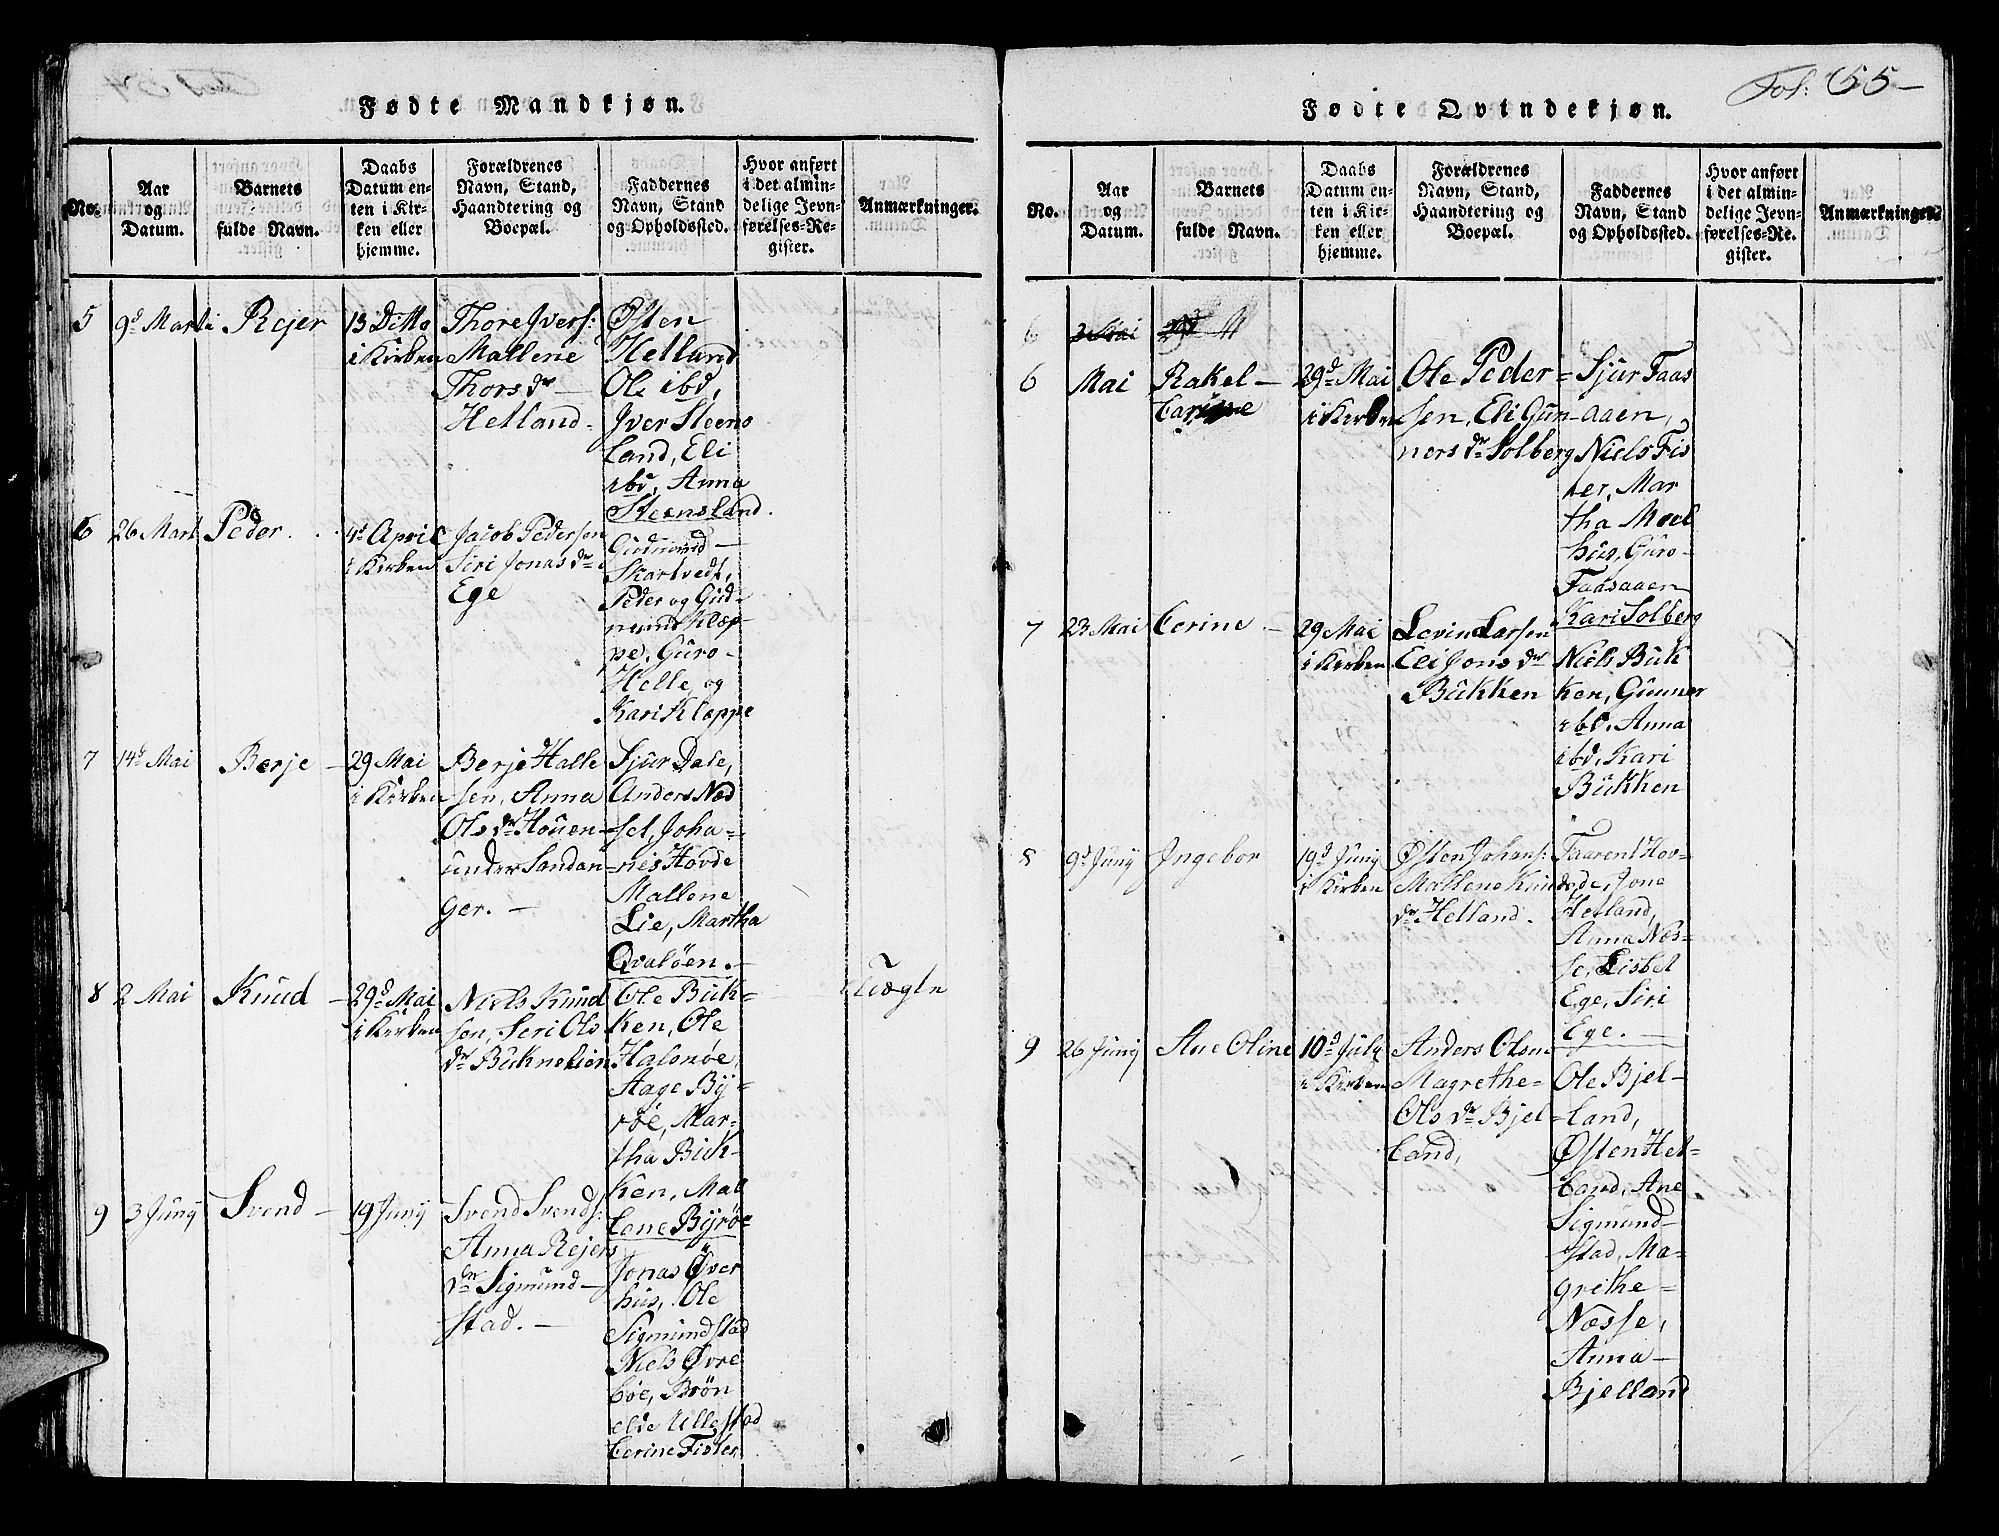 Fødte Mandkjøn.
No.
Aar
og
Datum.
Barnets
fulde Navn.
Daabs
Datum en-
ten i Kir-
ken eller
hjemme.
Forældrenes
Navn, Stand,
Haandtering og
Boepæl.
Faddernes
Navn, Stand
og Opholdssted.
Hvor anført
i det almin-
delige Jevn-
førelses-Re-
gister.
Anmærkninger.
5
9d Marti
Rejer
13 Ditto
i Kirken
Thore Jvers:
Mallene
Thors dr
Helland.
Østen
Helland
Ole ibd,
Jver Steens
land, Eli
ibd, Anna
Steensland.
6
26 Mart
Peder.
4d April
i Kirken
Jacob Pedersen
Siri Jonas dr
Ege
Gudmund
Skartvedt,
Peder og Gud-
mund Klæp-
pe, Guro-
Helle, og
Kari Klæppe
7
14d Mai
Berje
29 Mai
i Kirken
Berje Halle
sen, Anna
Ols dr Houen
under Sandan
ger.
Sjur Dale,
Anders Nød
set, Joha-
nis Hovde
Mallene
Lie, Martha
Qvaløen.
8
2 Mai
Knud
29d Mai
i Kirken
Niels Knud
sen, Seri Ols
dr Bukne Lien
Ole Buk-
ken, Ole
Halsnøe,
Aage By-
røe, Mar-
tha Buk-
ken, Mal
lene Byrøe
Uægte
9
3 Junij
Svend
19 Junij
Svend Svends:
Anna Rejers
dr Sigmund-
stad.
Jonas Øver
hus, Ole
Sigmundstad
Niels Øvre
bøe, Brøn
elde Ullestad
Cerine Fister
Fol: 55
Fødte Qvindekjøn.
No.
Aar
og
Datum.
Barnets
fulde Navn.
Daabs
Datum en-
ten i Kir-
ken eller
hjemme.
Forældrenes
Navn, Stand,
Haandtering og
Boepæl.
Faddernes
Navn, Stand
og Opholdssted.
Hvor anført
i det almin-
delige Jevn-
førelses-Re-
gister.
Anmærkninger.
6
6
Mai
Rakel
Carine
29d Mai
i Kirken
Ole Peder=
sen, Eli Gun
ners dr Solberg
Sjur Faas
aaen,
Niels Fis
ter, Mar
tha Moel
hus, Guro-
Faasaaen
Kari Solberg
7
23 Mai
Cerine
29 Mai
i Kirken
Levin Larsen
Eli Jons dr
Bukken
Niels Buk
ken, Gunner
ibd, Anna
ibd, Kari
Bukken
8
9d Junij
Ingebor
19d Junij
i Kirken
Østen Johans:
Mallene Knuds
dr Helland.
Taarent Hov-
de, Jone
Helland,
Anna Næs-
se, Lisbet
Ege, Siri
Ege.
9
26 Junij
Ane Oline
10d July
i Kirken
Anders Olsen
Magrethe-
Ols dr Bjel-
land,
Ole Bjel-
land,
Østen Hel-
land, Ane
Sigmund-
stad, Ma-
grethe=
Næsse,
Anna-
Bjelland